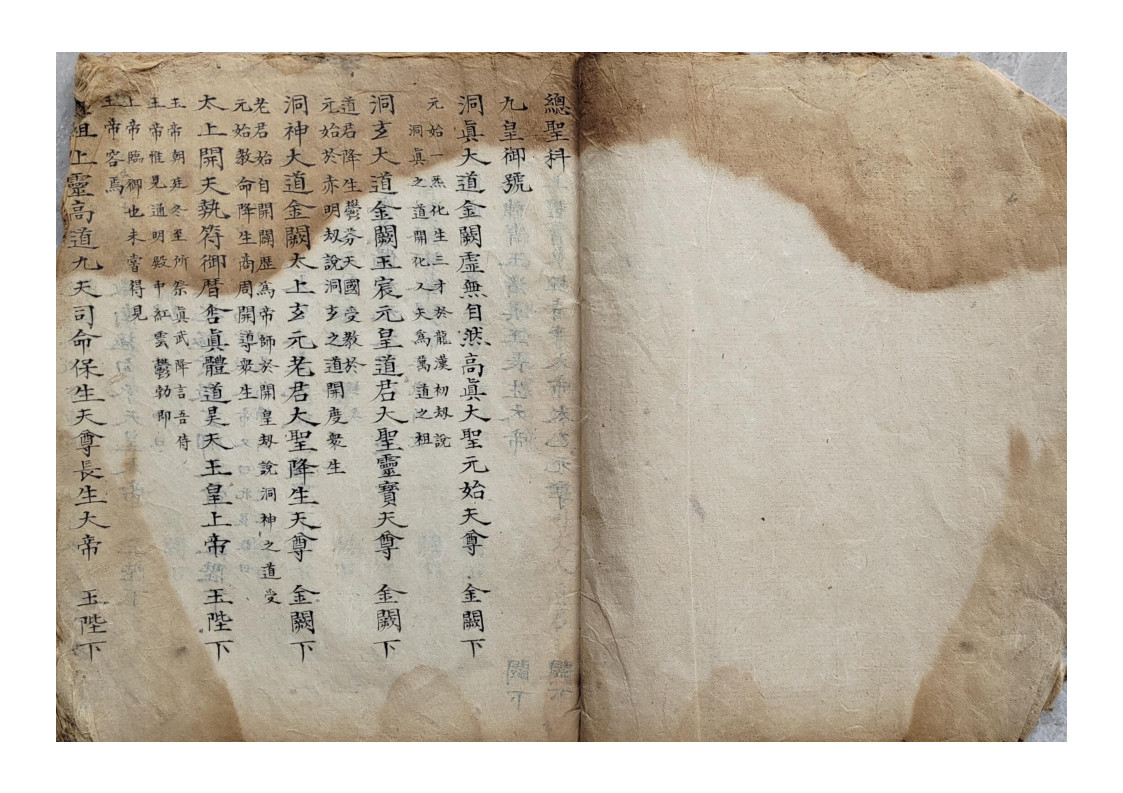 總聖科
九皇御號
洞眞大道金闕虛無自然高眞大聖元始天尊 金闕下
元始一炁化生三才於龍漢初刼說
洞眞之道開化人天爲萬道之祖
洞玄大道金闕玉宸元皇道君大聖靈寶天尊 金闕下
道君降生鬱孛天國受教於
元始於赤明刼說洞玄之道開度衆生
洞神大道金闕太上玄元老君大聖降生天尊 金闕下
老君始自開闢歷爲帝師於開皇刼說洞神之道受
元始教命降生商周開導衆生
太上開天執符御曆含眞體道昊天玉皇上帝 玉陛下
玉帝朝廷冬至所奈眞武降言吾侍
玉帝惟見通明殿中紅雲鬱勃即
上帝臨御也未嘗得見
玉帝容焉
祖上靈高道九天司命保生天尊長生大帝 玉陛下